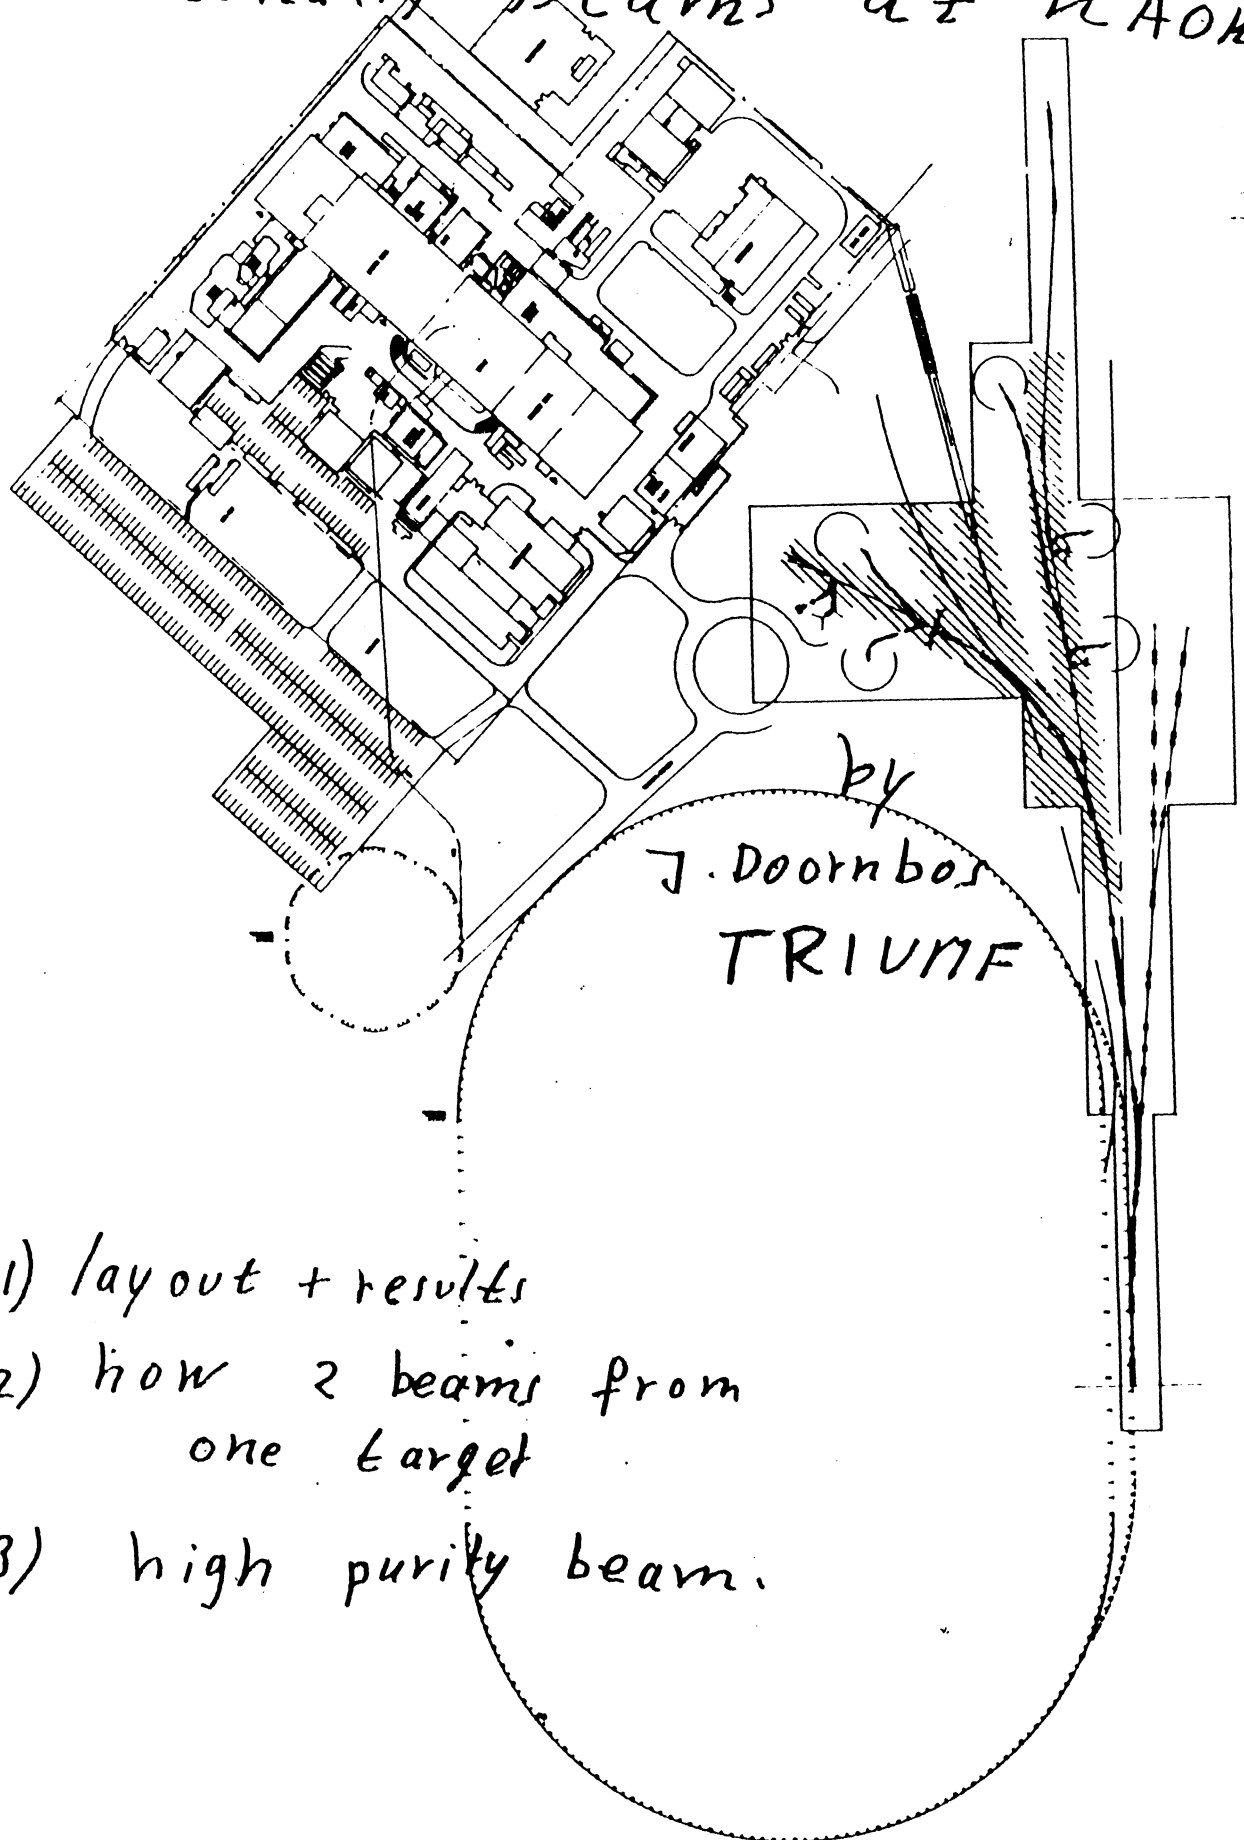 beams at KAON
by
J. Doornbos
TRIUMF
1) layout + results
2) how 2 beams from
one target
3) high purity beam.